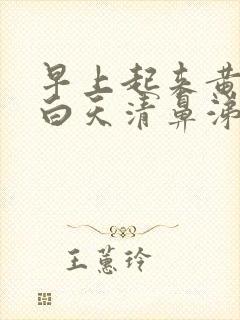 早上起来黄
白天清鼻涕
王蕙玲